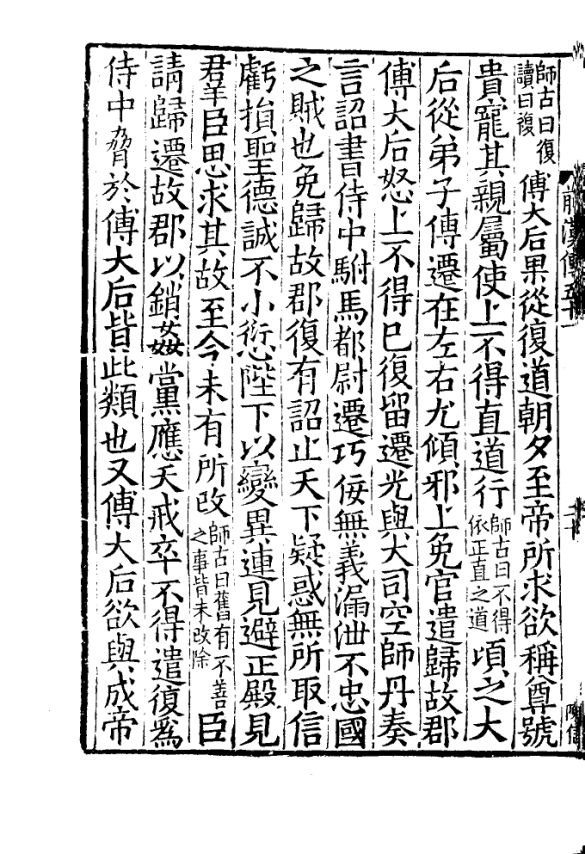 師古曰復讀曰複傅大后果從復道朝夕至帝所求欲稱尊號
貴寵其親屬使上不得直道行師古曰不得依正直之道頃之大
后從弟子傅遷在左右尤傾邪上免官遣歸故郡
傅大后怒上不得已復留遷光與大司空師丹奏
言詔書侍中駙馬都尉遷巧佞無義漏泄不忠國
之賊也免歸故郡復有詔止天下疑惑無所取信
虧損聖德誠不小愆陛下以變異連見避正殿見
羣臣思求其故至今未有所改師古曰舊有不善之事皆未改除臣
請歸遷故郡以銷姦黨應天戒卒不得遣復爲
侍中脅於傅大后皆此類也又傅大后欲與成帝